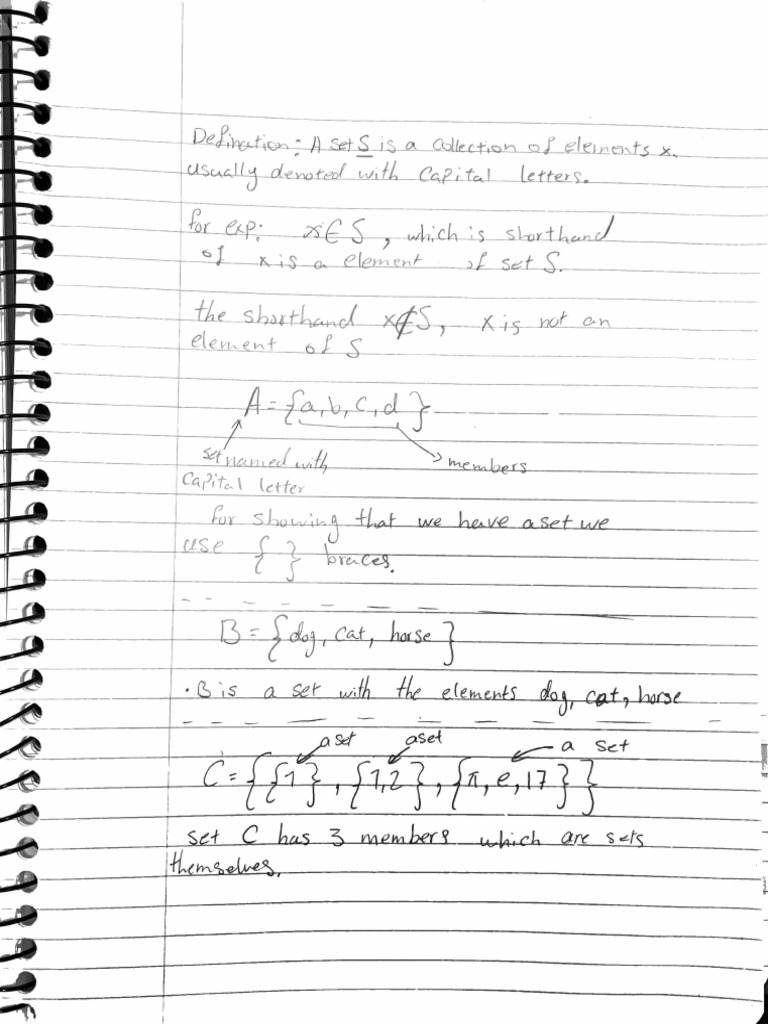 Defination: A set S is a collection of elements x.
usually denoted with Capital letters.
for exp: x∈S, which is shorthand
of x is a element of set S.
the shorthand x∉S, x is not an
element of S
A = {a, b, c, d}
set named with
members
Capital letter
for showing that we have a set we
use { } braces.
B = {dog, cat, horse}
· B is a set with the elements dog, cat, horse
a set aset a set
C = {{1}, {1,2}, {π, e, 17}}
set C has 3 members which are sets
themselves.